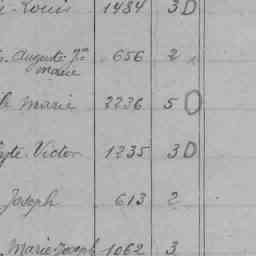 Louis 1484 3 D
Auguste Jn 656 2
Marie
Marie 2236 5 O
Victor 1235 3 D
Joseph 613 2
Marie Joseph 1062 3